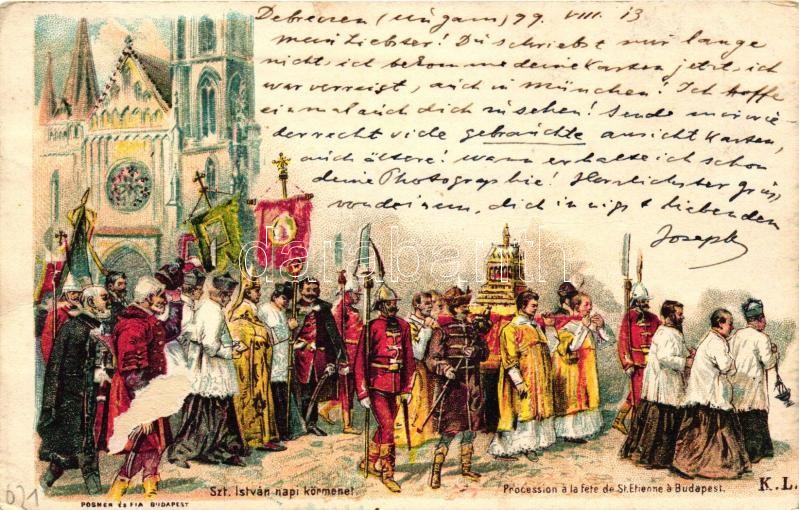 Debreczen (Ungarn) 99. VIII. 13
Mein Liebster! Du schriebst mir lange
nicht, ich bekomme deine Karten jetzt, ich
war verreist, auch in München! Ich hoffe
einmal auch dich zu sehen! Sende mir wie-
der recht viele gebrauchte Ansicht Karten,
auch ältere! Wann erhalte ich schon
deine Photographie! Herzlichster Gruss
von deinem, dich innigst liebenden
Joseph
darabanth
Szt. István napi körmenet.
Procession à la fête de St. Etienne à Budapest.
K. L.
POSNER ÉS FIA BUDAPEST
021